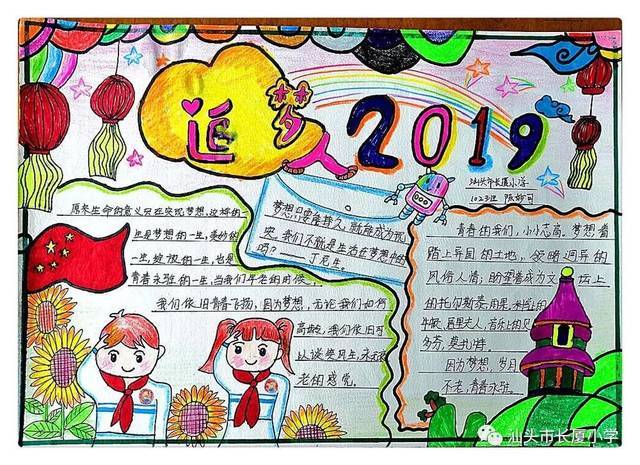 追梦2019
汕头市长厦小学
原来生命的意义只在实现梦想,这样的一
生是梦想的一生,美妙的
一生,健枝的一生,也是
青春永驻的一生,当我们年老的时候,
我们依旧青春飞扬,因为梦想,无论我们如何
高龄,我们依旧可
以谈笑风生,永无衰
老的感觉。
梦想只要能持久,就能成为现
实。我们不就是生活在梦想中的
吗?——丁尼生
青春的我们,小小志高。梦想着
踏上异国的土地,领略迥异的
风俗人情;盼望着成为文坛上
的托尔斯泰
牛顿、居里夫人、音乐上的贝
多芬、莫扎特。
因为梦想,岁月
不老,青春永驻。
汕头市长厦小学